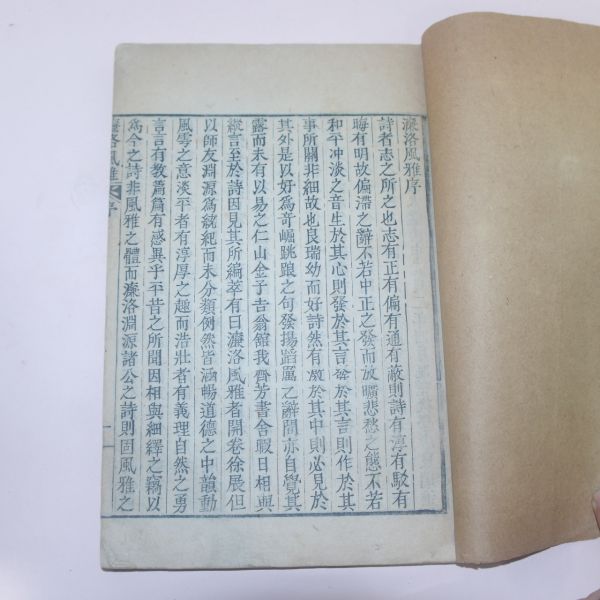 濂洛風雅序
詩者志之所之也志有正有偏有通有蔽則詩有淳有駁有
晦有明故偏滯之辭不若中正之發而放曠悲愁之態不若
和平冲淡之音生於其心則發於其言發於其言則作於其
事所關非細故也良瑞幼而好詩然有激於其中則必見於
其外是以好為奇崛跳踉之句發揚蹈厲之辭間亦自覺其
露而未有以易之仁山金子吉翁館我齊芳書舍暇日相與
縱言至於詩因見其所編萃有曰濂洛風雅者開卷徐展但
以師友淵源為統紀而未分類例然皆涵暢道德之中歆動
風雩之意淡平者有淳厚之趣而浩壯者有義理自然之勇
言言有教篇篇有感異乎平昔之所聞因相與紬繹之竊以
為今之詩非風雅之體而濂洛淵源諸公之詩則固風雅之
濂洛風雅 序